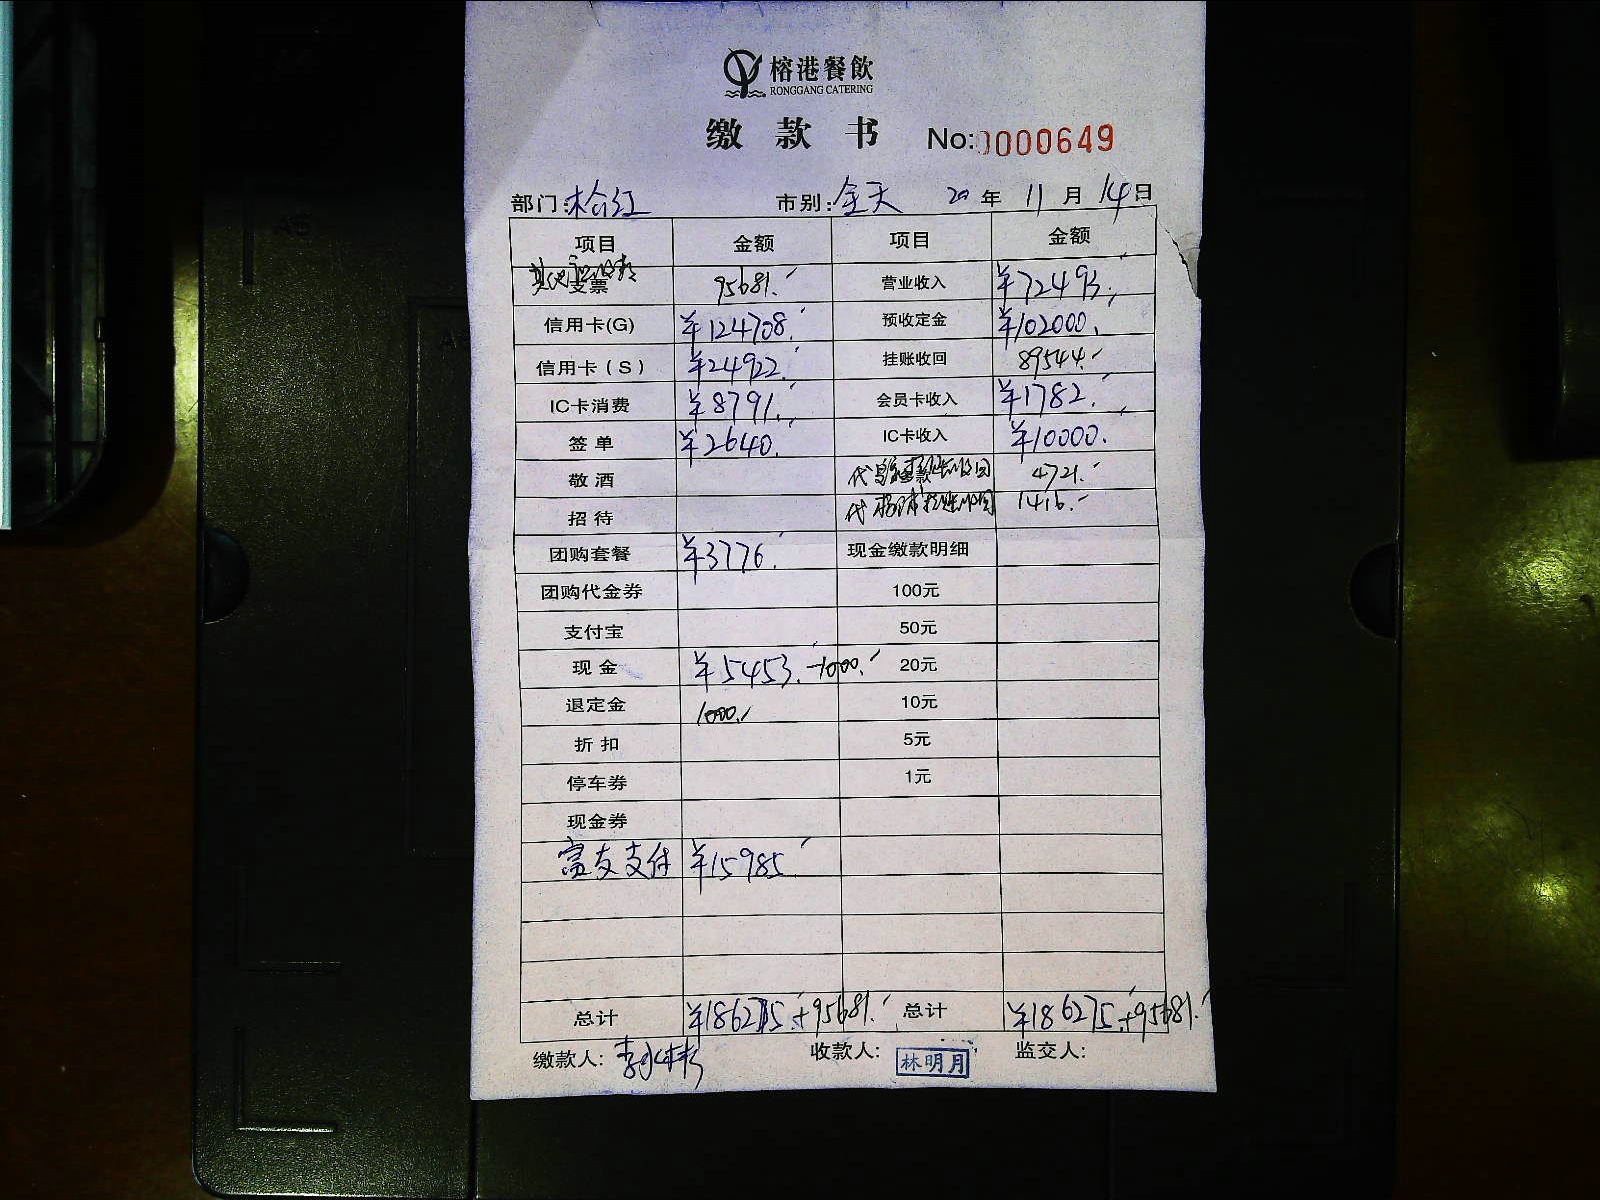 榕港餐飲
RONGGANG CATERING
缴款书 No:0000649
部门: 市别:全天 20年11月14日
项目 金额 项目 金额
支票 95681. 营业收入 ¥72493.
信用卡(G) ¥124708. 预收定金 ¥102000.
信用卡(S) ¥24922. 挂账收回 89544.
IC卡消费 ¥8791. 会员卡收入 ¥1782.
签单 ¥2640. IC卡收入 ¥10000.
敬酒 4721.
招待 1416.
团购套餐 ¥3776. 现金缴款明细
团购代金券 100元
支付宝 50元
现金 ¥5453.-1000. 20元
退定金 1000. 10元
折扣 5元
停车券 1元
现金券
富友支付 ¥15985.
总计 ¥186275.+95681. 总计 ¥186275.+95681.
缴款人: 收款人: 林明月 监交人: